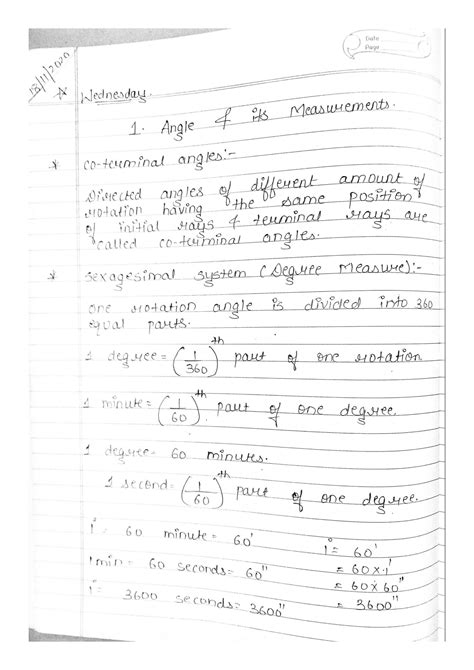 Date
Page
18/11/2020
☆ Wednesday.
1. Angle & its Measurements.
* co-terminal angles:-
Directed angles of different amount of
rotation having the same position
of initial rays & terminal rays are
called co-terminal angles.
* Sexagesimal system (Degree Measure):-
One rotation angle is divided into 360
equal parts.
1 degree = (1/360)th part of one rotation
1 minute = (1/60)th part of one degree.
1 degree = 60 minutes.
1 second = (1/60)th part of one degree.
1° = 60 minute = 60'
1 min = 60 seconds = 60"
1° = 3600 seconds = 3600"
1° = 60'
= 60×1'
= 60×60"
= 3600"